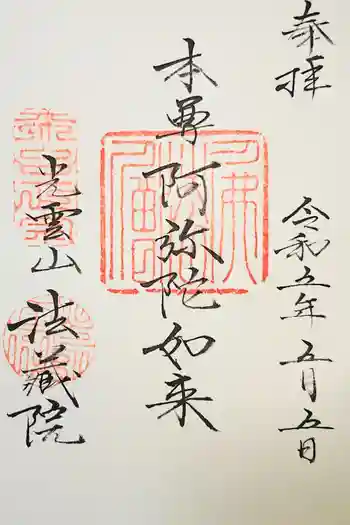 奉拝
令和五年 五月五日
本尊 阿弥陀如来
光雲山
法蔵院